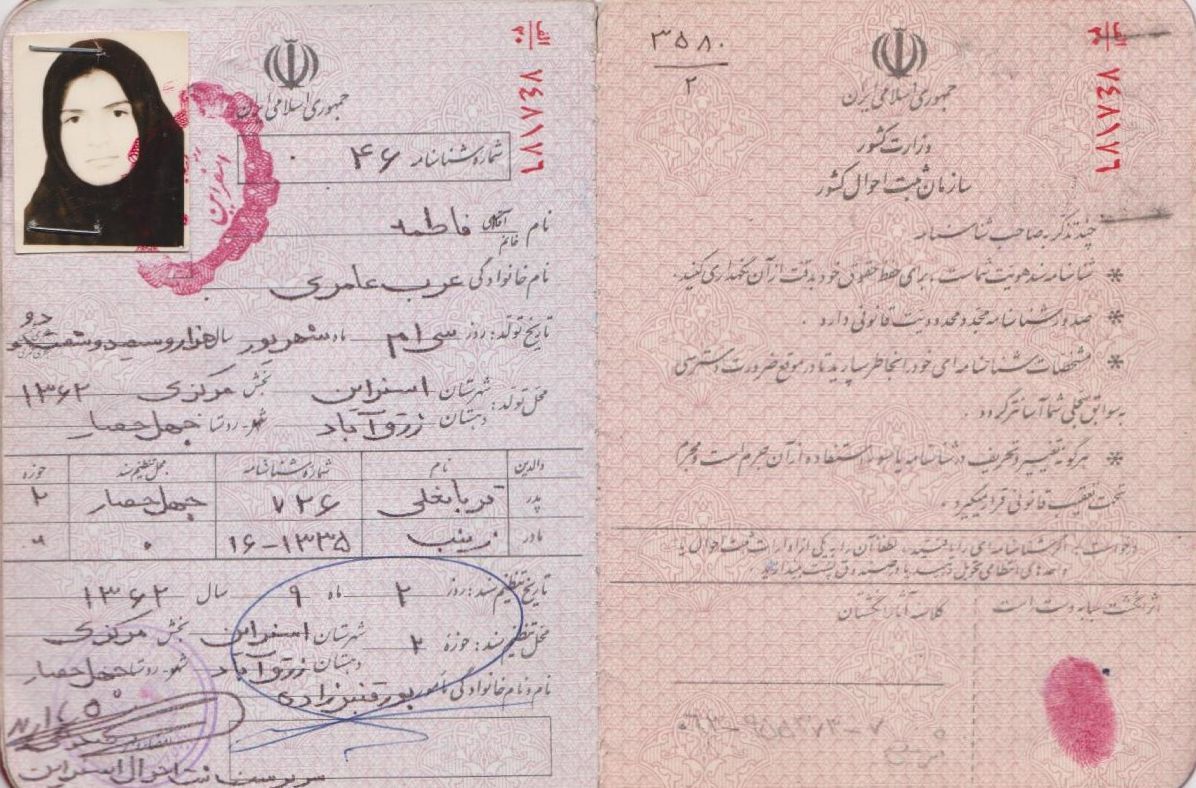 الف
۲۰
۶۸۱۷۴۸
جمهوری اسلامی ایران
شماره شناسنامه ۴۶
اسفراین
نام آقای خانم فاطمه
نام خانوادگی عرب عامری
تاریخ تولد: روز سی ام ماه شهریور سال هزار و سیصد و شصت و دو
۱۳۶۲
محل تولد: شهرستان اسفراین بخش مرکزی
دهستان زرق آباد شهر-روستا چهل حصار
والدین نام شماره شناسنامه محل تنظیم سند حوزه
پدر قربانعلی ۷۲۶ چهل حصار ۲
مادر زینب ۱۶-۱۳۳۵ ۰ ۰
تاریخ تنظیم سند: روز ۲ ماه ۹ سال ۱۳۶۲
محل تنظیم سند: حوزه ۲ شهرستان اسفراین بخش مرکزی
دهستان زرق آباد شهر-روستا چهل حصار
نام و نام خانوادگی مامور پورقنبر زادی
سرپرست ثبت احوال اسفراین
۳۵۸۰
۲
الف
۲۰
۶۸۱۷۴۸
جمهوری اسلامی ایران
وزارت کشور
سازمان ثبت احوال کشور
چند تذکر به صاحب شناسنامه
* شناسنامه سند هویت شماست، برای حفظ حقوق خود بدقت از آن نگهداری کنید.
* صدور شناسنامه مجدد محدودیت قانونی دارد.
* مشخصات شناسنامه ای خود را بخاطر بسپارید تا در موقع ضرورت دسترسی
به سوابق سجلی شما آسانتر گردد.
* هرگونه تغییر و تحریف در شناسنامه یا سوء استفاده از آن جرم است و مجرم
تحت تعقیب قانونی قرار میگیرد.
درخواست: اگر شناسنامه ای را یافتید، لطفا آن را به یکی از ادارات ثبت احوال یا
واحدهای انتظامی تحویل دهید یا در صندوق پست بیندازید.
اثر انگشت سبابه دست راست
کلاسه آثار انگشتان